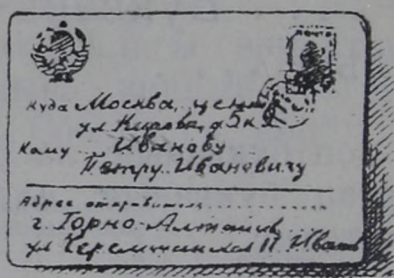 почта
Куда Москва, центр
ул Кирова, д 5 к
Кому Иванову
Петру Ивановичу
Адрес отправителя
г. Горно-Алтайск
ул П. Иванов